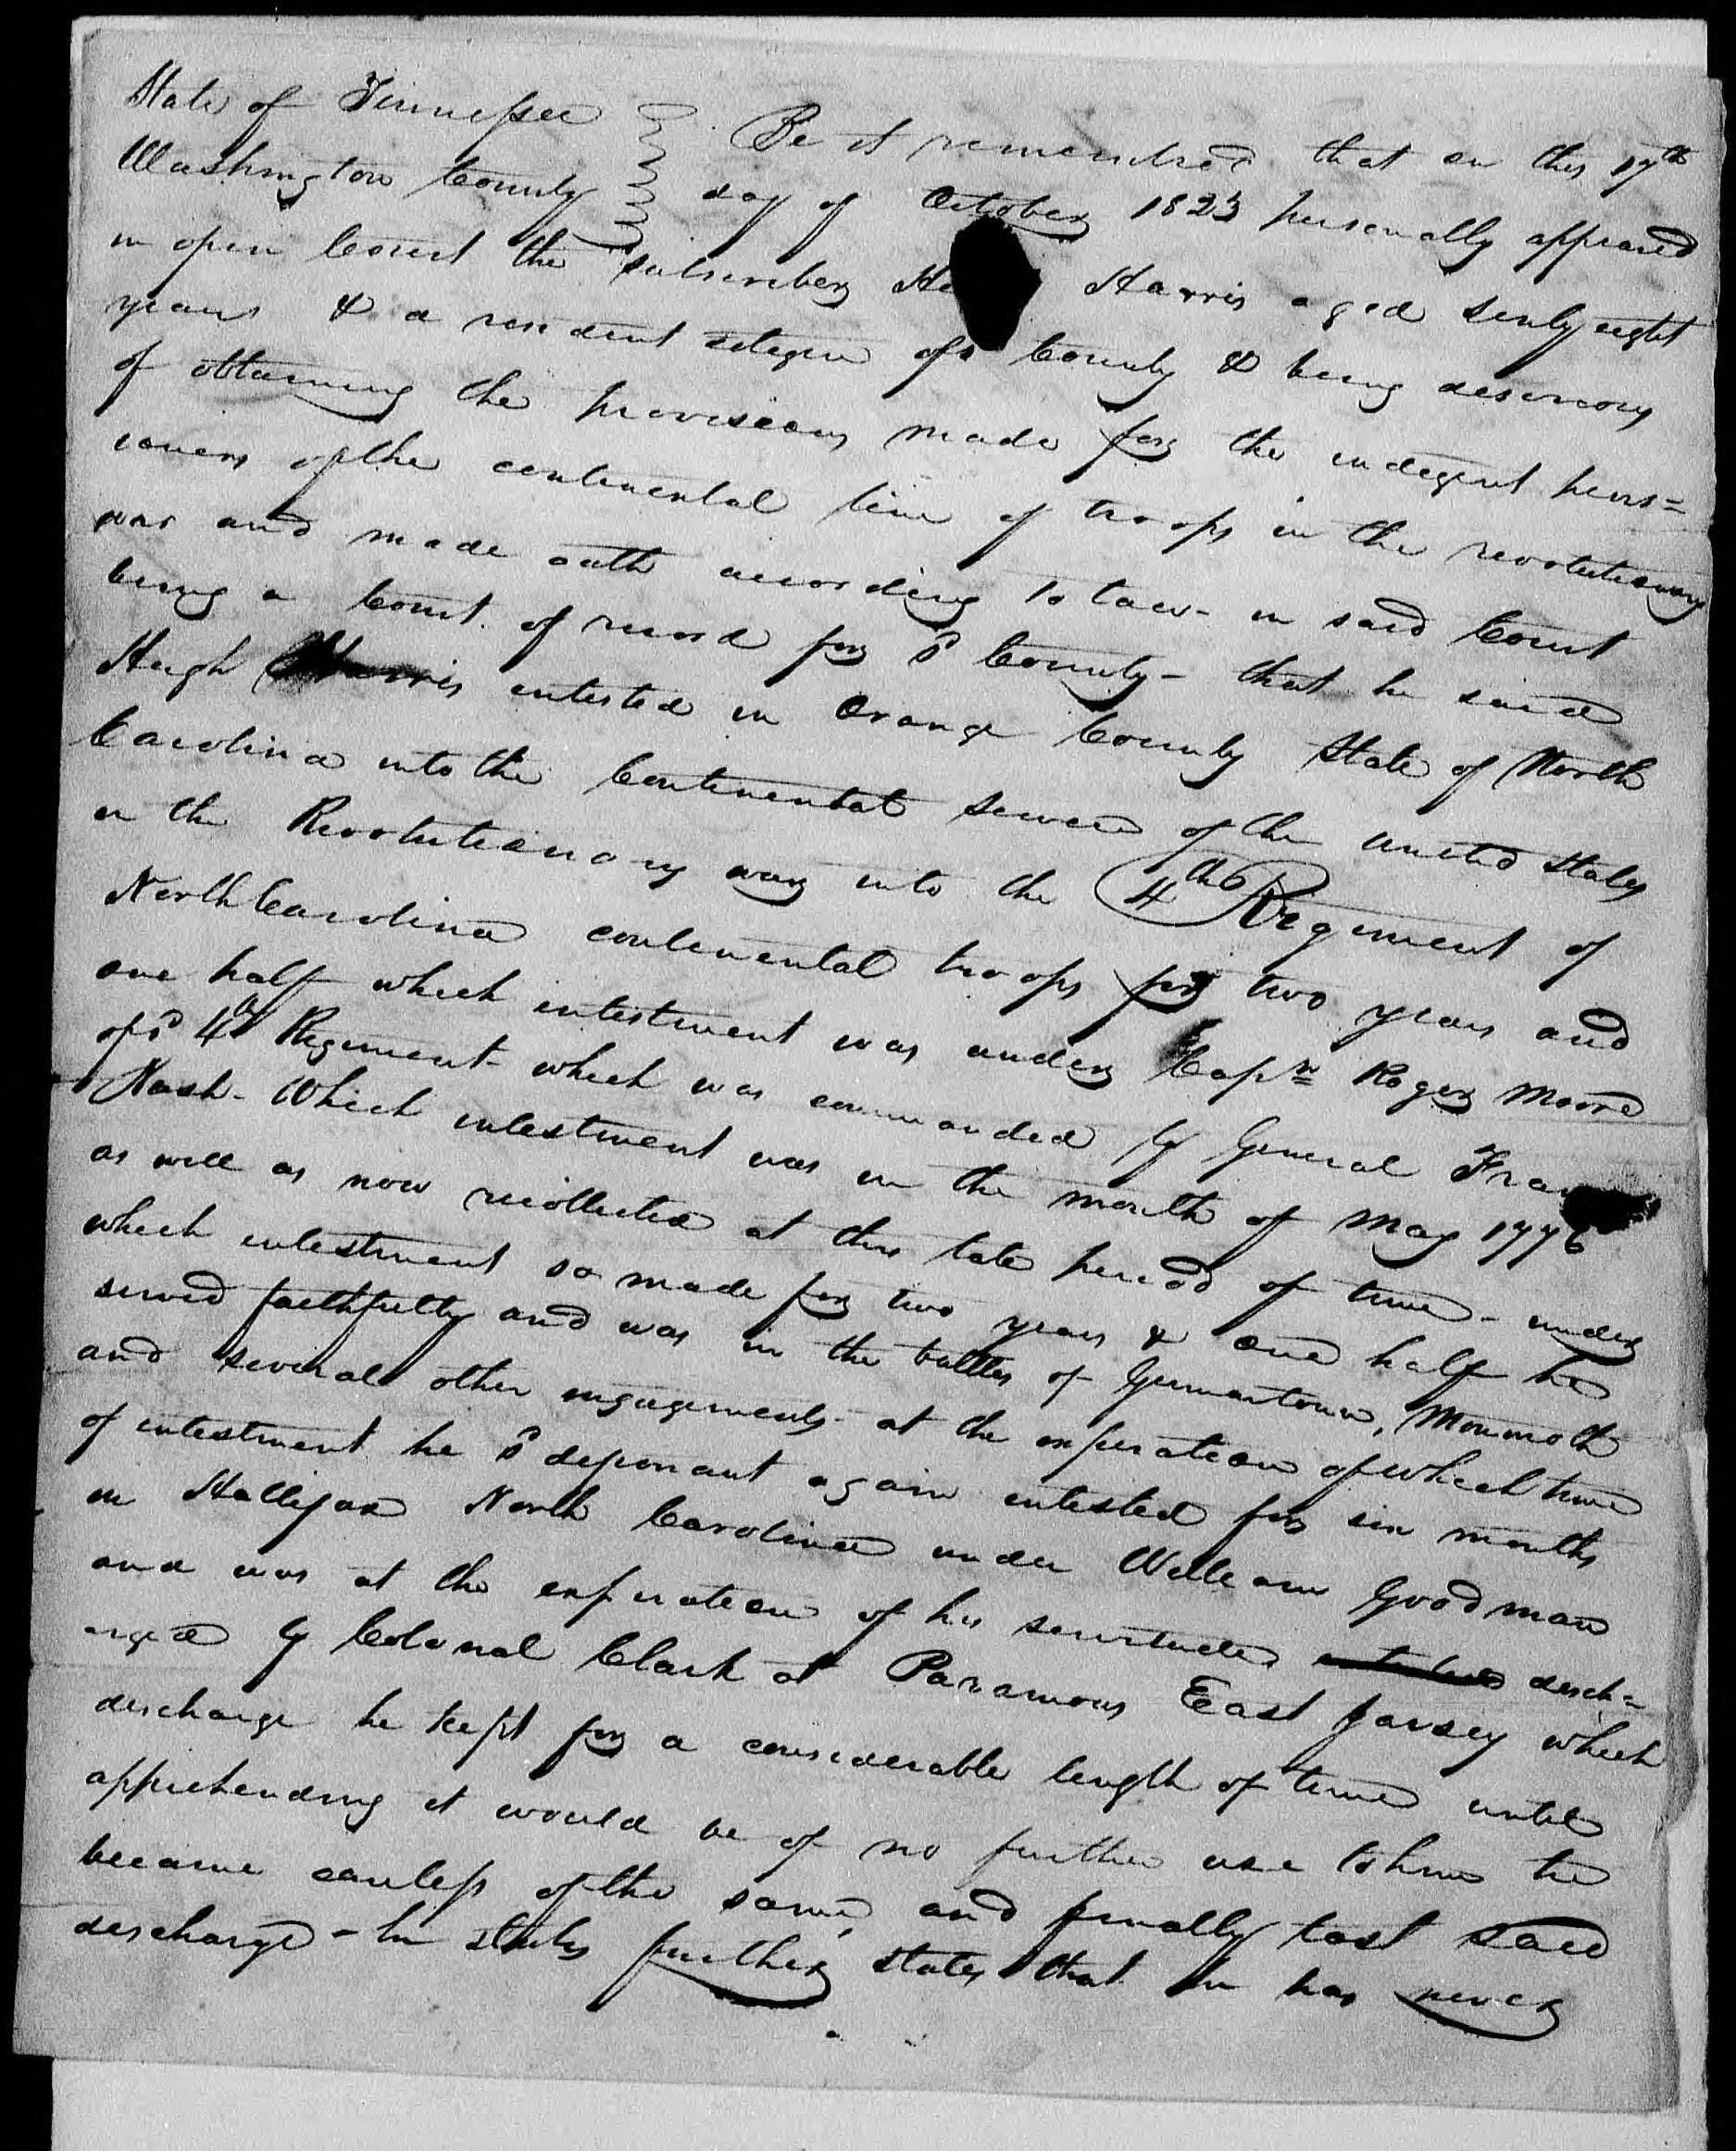 State of Tennessee } Be it remembred that on this 17th
Washington County } day of October 1823 personally appeared
in open Court the subscriber Harris aged sixty eight
years & a resident citizen of County & being desireous
of obtaining the provisions made for the indegent pens=
ioners of the continental line of troops in the revolutionary
war and made oath according to law - in said Court
being a Court of record for sd County - that he said
Hugh Harris entested in Orange County State of North
Carolina into the Continental service of the united States
in the Revolutionary war into the 4th Regiment of
North Carolina continental troops for two years and
one half which intestment was under Capn Roger Moore
of sd 4th Regiment which was commanded by General
Nash - Which intestment was in the month of May 1776
as well as now recollected at this late period of time - under
which intestment so made for two years & one half he
served faithfully and was in the battles of Germantown, Monmoth
and several other engagements - at the expiration of which time
of intestment he sd deponant again entested for six months
in Hallifax North Carolina under William Goodman
and was at the expiration of his servitude disch=
arged by Colonal Clark at Paramous East Jarsey which
discharge he kept for a considerable length of time until
apprehending it would be of no further use to him he
became careless of the same, and finally lost said
discharge - he states further states that he has never